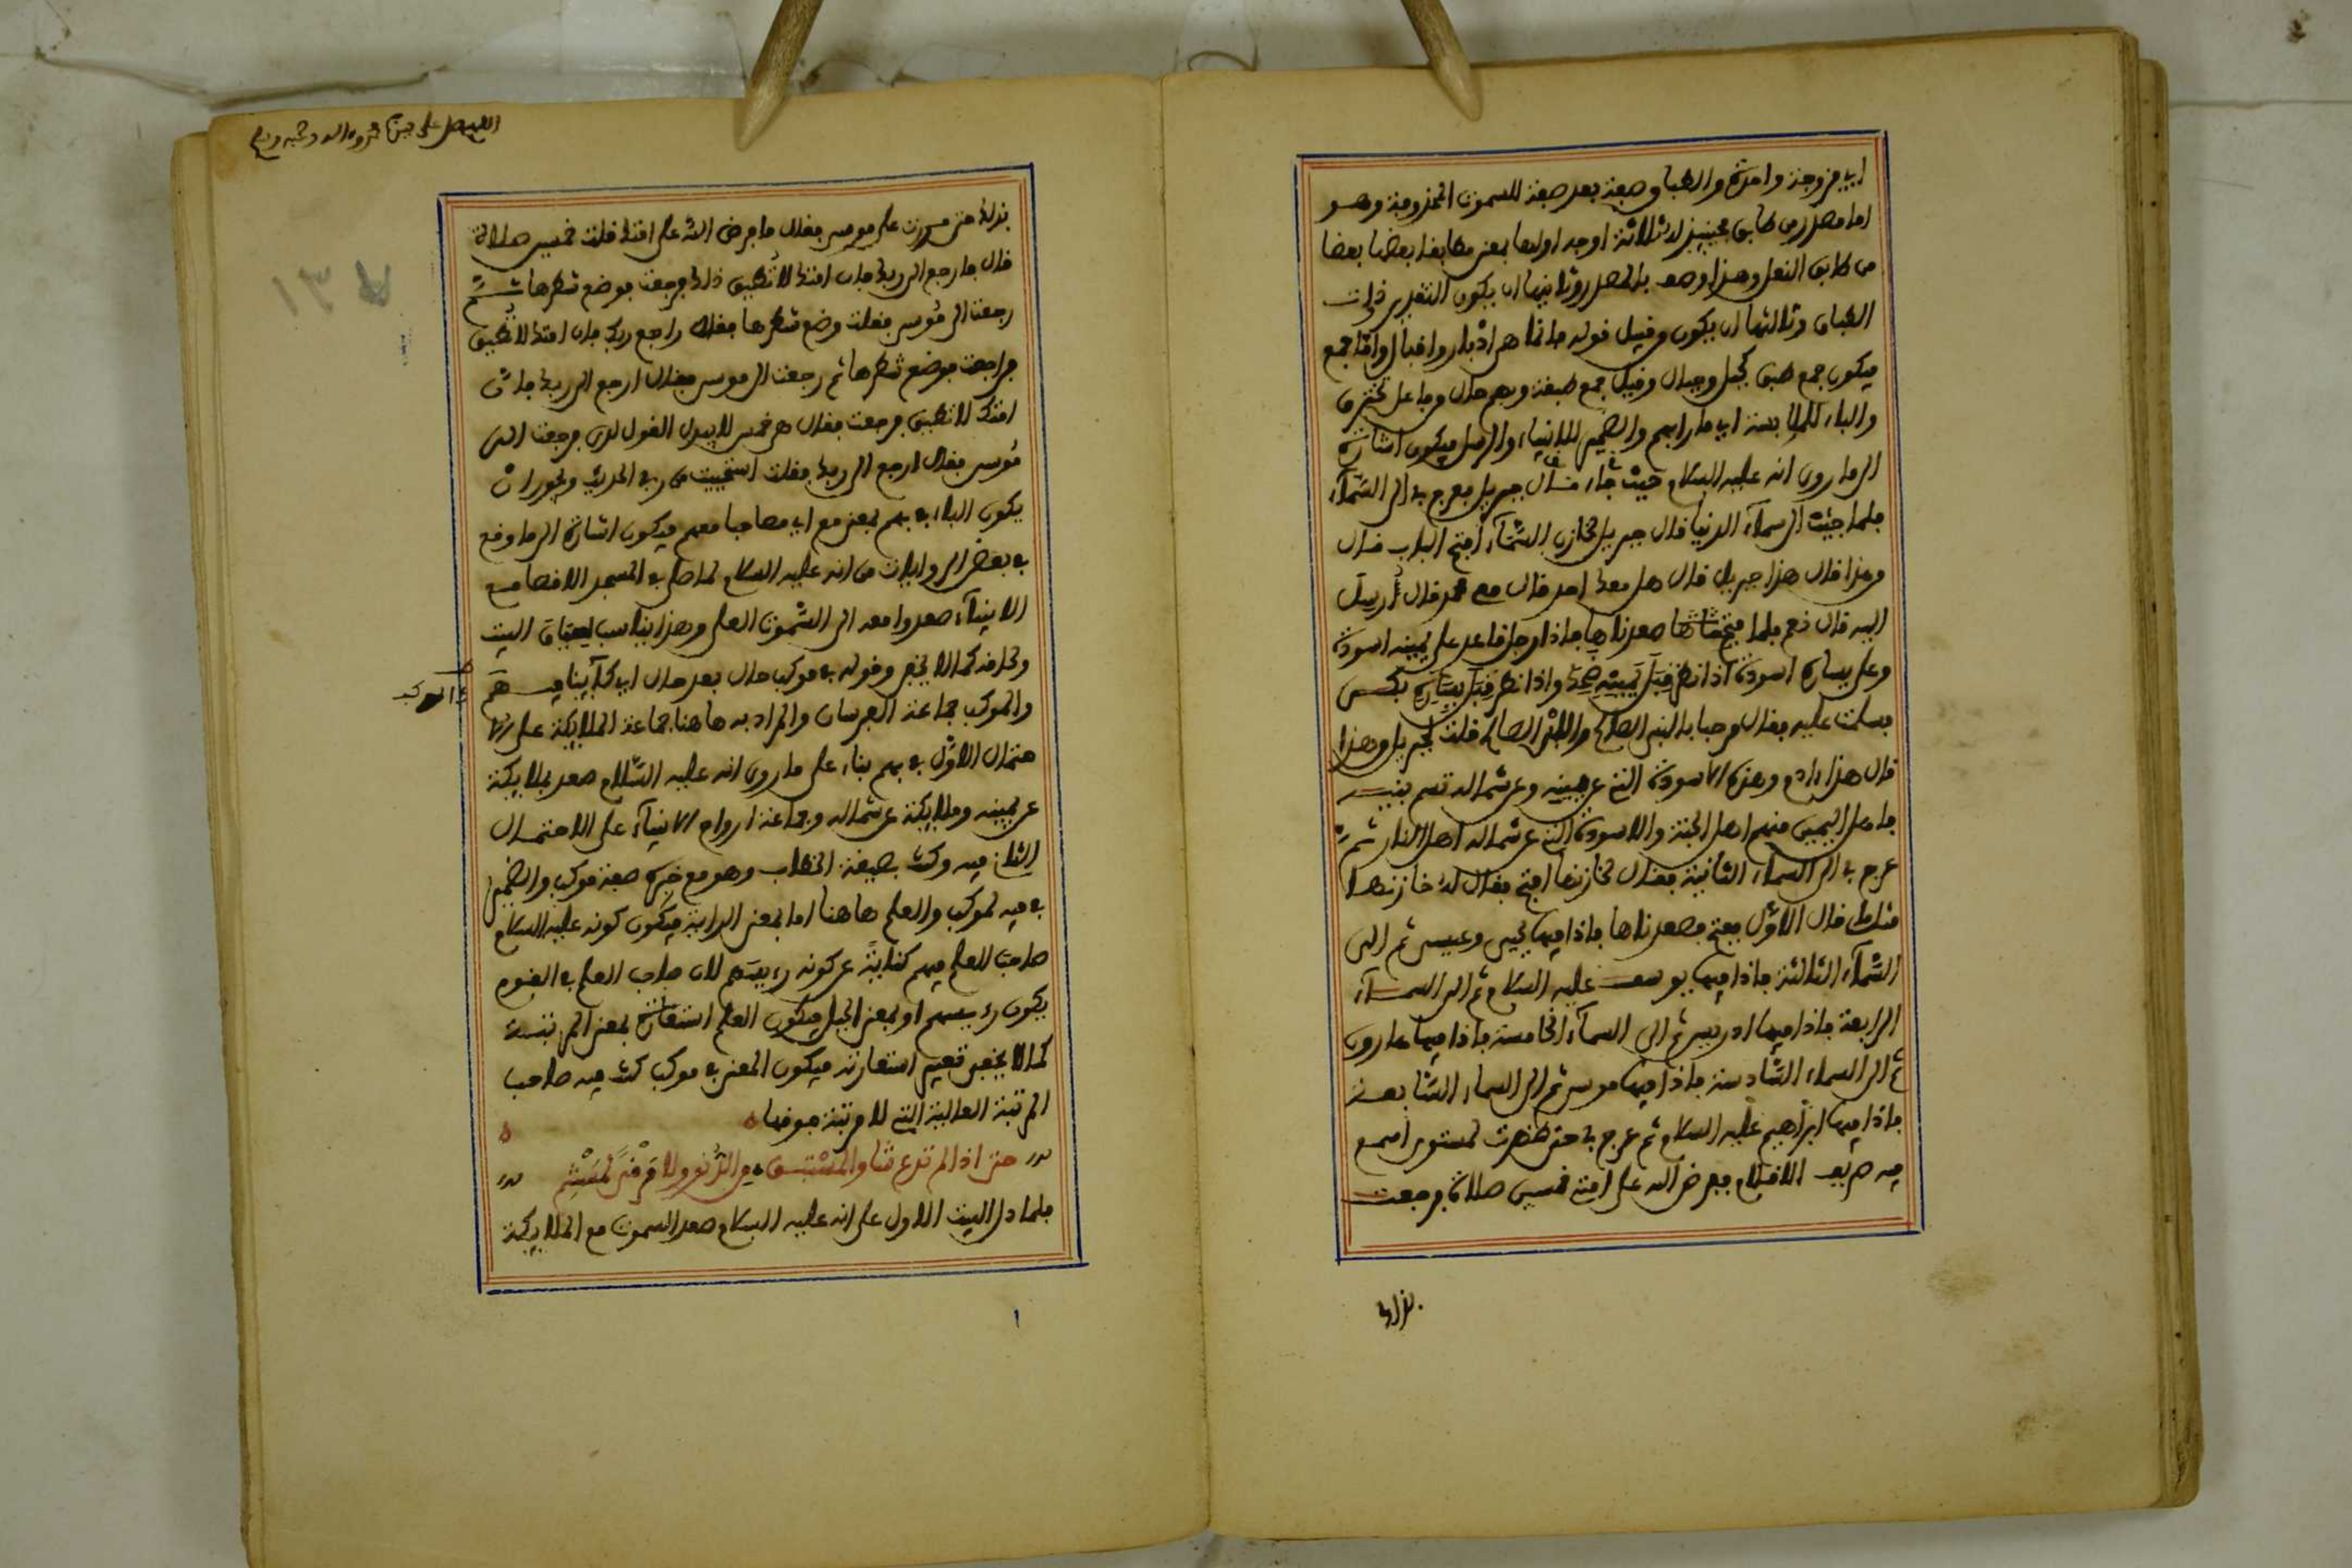 اي مزوجة وامرتج والطباق صفة بعد صفة للسموت المخزومة وهو
اما مصدر من طابق بمعنيين لثلاثة اوجه اولها بمعنى مطابقة بعضها بعضا
من طابق النعل وهذا وصف بالمصدر وثانيها ان يكون التقدير ذات
الطباق وثالثها ان يكون من قبيل قوله فانما هي اقبال وادبار واما جمع
فيكون جمع طبق كجبل وجبال وقيل جمع طبقة وبهم حال من فاعل تخترق
والباء للملابسة اي مارا بهم والضمير للانبياء والرسل فيكون اشارة
الى ما روى انه عليه السلام حيث قال جاء جبريل فعرج بي الى السماء
فلما جئت الى سماء الدنيا قال جبريل لخازن السماء افتح الباب قال
من هذا قال هذا جبريل قال هل معك احد قال معي محمد قال أرسل
اليه قال نعم فلما فتحها صعدناها فاذا رجل قاعد على يمينه اسودة
وعلى يساره اسودة اذا نظر قبل يمينه ضحك واذا نظر قبل يساره بكى
فسلمت عليه فقال مرحبا بالنبي الصالح والابن الصالح قلت لجبريل من هذا
قال هذا ءادم وهذه الاسودة التي عن يمينه وعن شماله نسم بنيه
فاهل اليمين منهم اهل الجنة والاسودة التي عن شماله اهل النار ثم
عرج بي الى السماء الثانية فقال لخازنها افتح فقال له خازنها
مثل ما قال الاول ففتح فصعدناها فاذا فيها يحيى وعيسى ثم الى
السماء الثالثة فاذا فيها يوسف عليه السلام ثم الى السماء
الرابعة فاذا فيها ادريس ثم الى السماء الخامسة فاذا فيها هارون
ثم الى السماء السادسة فاذا فيها موسى ثم الى السماء السابعة
فاذا فيها ابراهيم عليه السلام ثم عرج بي حتى ظهرت لمستوى اسمع
فيه صريف الاقلام ففرض الله على امتي خمسين صلاة فرجعت
بذلك
اللهم صل على
بذلك حتى مررت على موسى فقال ما فرض الله على امتك قلت خمسين صلاة
قال فارجع الى ربك فان امتك لا تطيق ذلك فرجعت فوضع شطرها ثم
رجعت الى موسى فقلت وضع شطرها فقال راجع ربك فان امتك لا تطيق
فراجعت فوضع شطرها ثم رجعت الى موسى فقال ارجع الى ربك فان
امتك لا تطيق فرجعت فقال هي خمس لا يبدل القول لدي فرجعت الى
موسى فقال ارجع الى ربك فقلت استحييت من ربي الحديث ويجوز ان
يكون الباء في بهم بمعنى مع اي مصاحبا معهم فيكون اشارة الى ما وقع
في بعض الروايات من انه عليه السلام لما صلى في المسجد الاقصا مع
الانبياء صعدوا معه الى السموت العلى وهذا يناسب لسياق البيت
ولحاقه كما لا يخفى وقوله في موكب حال بعد حال اي كاينا فيهم
والموكب جماعة الفرسان والمراد به هاهنا جماعة الملايكة على
في الموكب
احتمال الاول في بهم بناء على ما روى انه عليه السلام صعد بملايكة
عن يمينه وملايكة عن شماله وجماعة ارواح الانبياء على الاحتمال
الثاني فيه وكنت بصيغة الخطاب وهو مع خبره صفة موكب والضمير
في فيه لموكب والعلم هاهنا اما بمعنى الراية فيكون كونه عليه السلام
صاحب العلم فيهم كناية عن كونه رءيسهم لان صاحب العلم في القوم
يكون رءيسهم او بمعنى الجبل فيكون العلم استعارة بمعنى المرتبة
كما لا يخفى تعميم استعارته فيكون المعنى في موكب كنت فيه صاحب
المرتبة العالية التي لا مرتبة فوقها
حتى اذا لم تدع شأوا لمستبق من الدنو ولا مرقى لمستنم
فلما دل البيت الاول على انه عليه السلام صعد السموت مع الملايكة